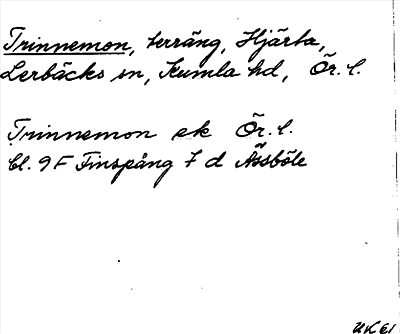 Trinnemon, terräng, Hjärta,
Lerbäcks sn, Kumla hd, Ör. l.
Trinnemon ek Ör. l.
bl. 9F Finspång 7 d Åssböle
UK 61